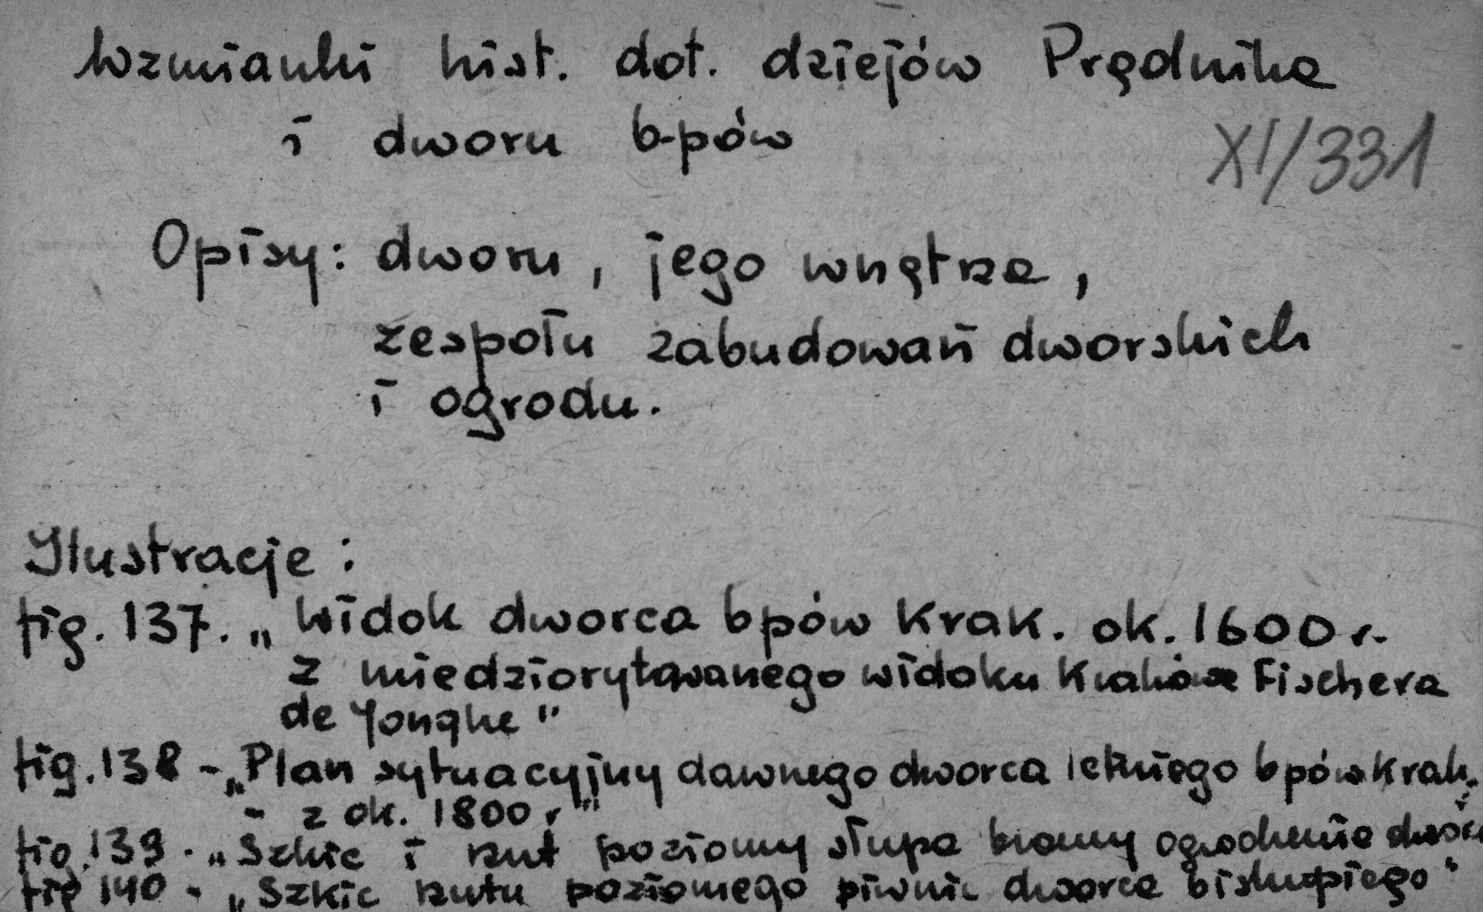 Wzmianki hist. dot. dziejów Prędnika
i dworu b-pów
XI/331
Opisy: dworu, jego wnętrza,
zespołu zabudowań dworskich
i ogrodu.
Ilustracje:
fig. 137. „Widok dworca bpów Krak. ok. 1600 r.
z miedziorytowanego widoku Krakowa Fischera
de Jonghe"
fig. 138 - „Plan sytuacyjny dawnego dworca letniego bpów krak.
- z ok. 1800 r"
fig. 139 - „Szkic i rzut poziomy słupa bramy ogrodzenia
fig 140 - „Szkic rzutu poziomego piwnic dworca biskupiego"